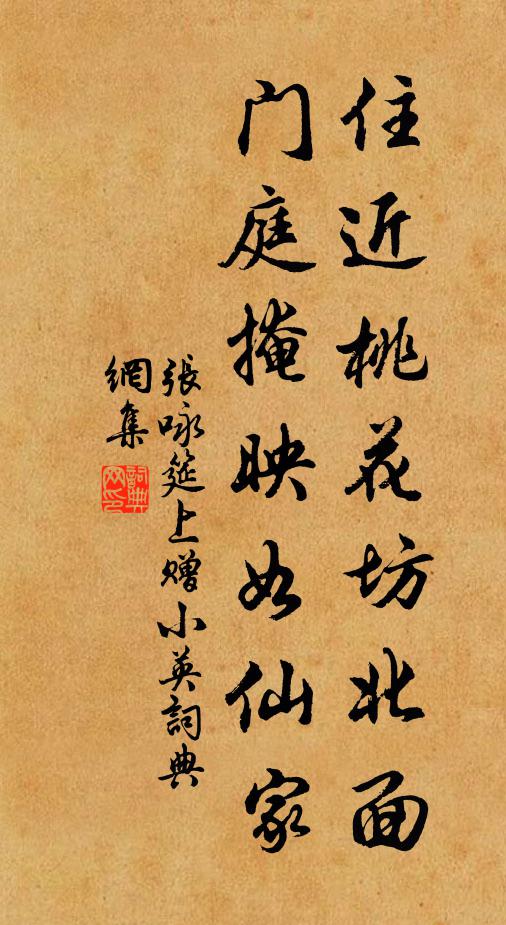 住近桃花坊北面
门庭掩映如仙家
張咏筵上赠小英詞典
網集
詞典
网印